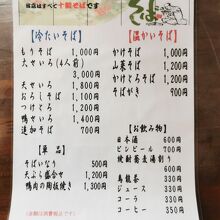 当店はすべて十割そばです
そば
【冷たいそば】
もりそば 1,000円
大せいろ(4人前)
3,000円
天せいろ 1,800円
おろしそば 1,200円
つけとろ 1,200円
鴨せいろ 1,500円
追加そば 700円
【単品】
そばいなり 500円
天ぷら盛合せ 1,200円
鴨肉の陶板焼き 1,300円
【温かいそば】
かけそば 1,000円
山菜そば 1,200円
かけとろそば 1,200円
そばがき 900円
【お飲み物】
日本酒 600円
ビンビール 700円
焼酎蕎麦湯割り
600円
烏龍茶 300円
ジュース 330円
コーラ 330円
コーヒー 350円
(金額は消費税込です)